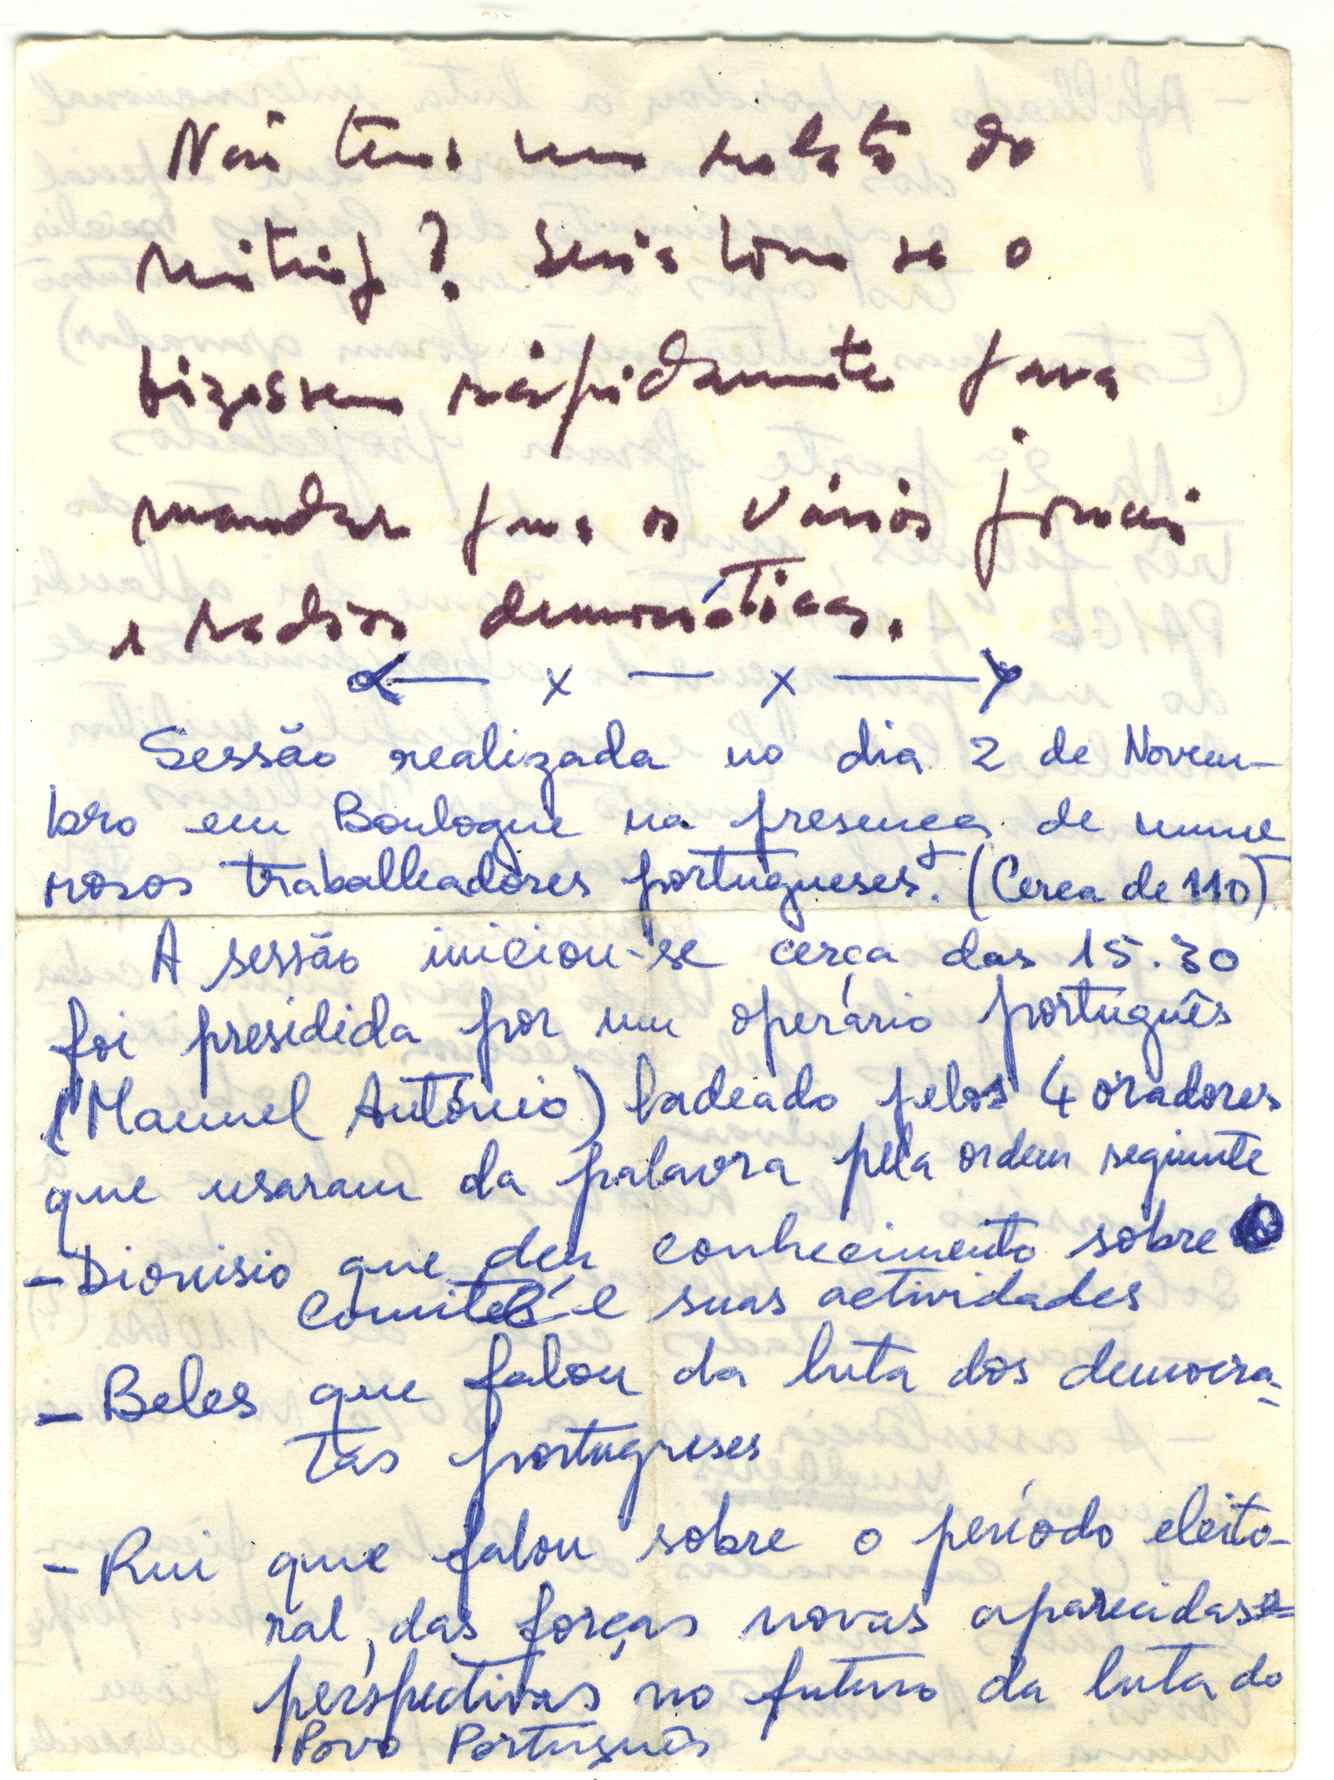 Não tens um relato do
miting? Seria bom se o
fizessem rápidamente para
mandar para os vários jornais
e radios democráticas.
x — x
Sessão realizada no dia 2 de Novem-
bro em Boulogne na presença de nume
rosos trabalhadores portugueses. (Cerca de 110)
A sessão iniciou-se cerca das 15.30
foi presidida por um operário português
(Manuel António) ladeado pelos 4 oradores
que usaram da palavra pela ordem seguinte
- Dionisio que deu conhecimento sobre
Comités e suas actividades
- Beles que falou da luta dos democra-
tas portugueses
- Rui que falou sobre o período eleito-
ral, das forças novas aparecidas
perspectivas no futuro da luta do
Povo Português